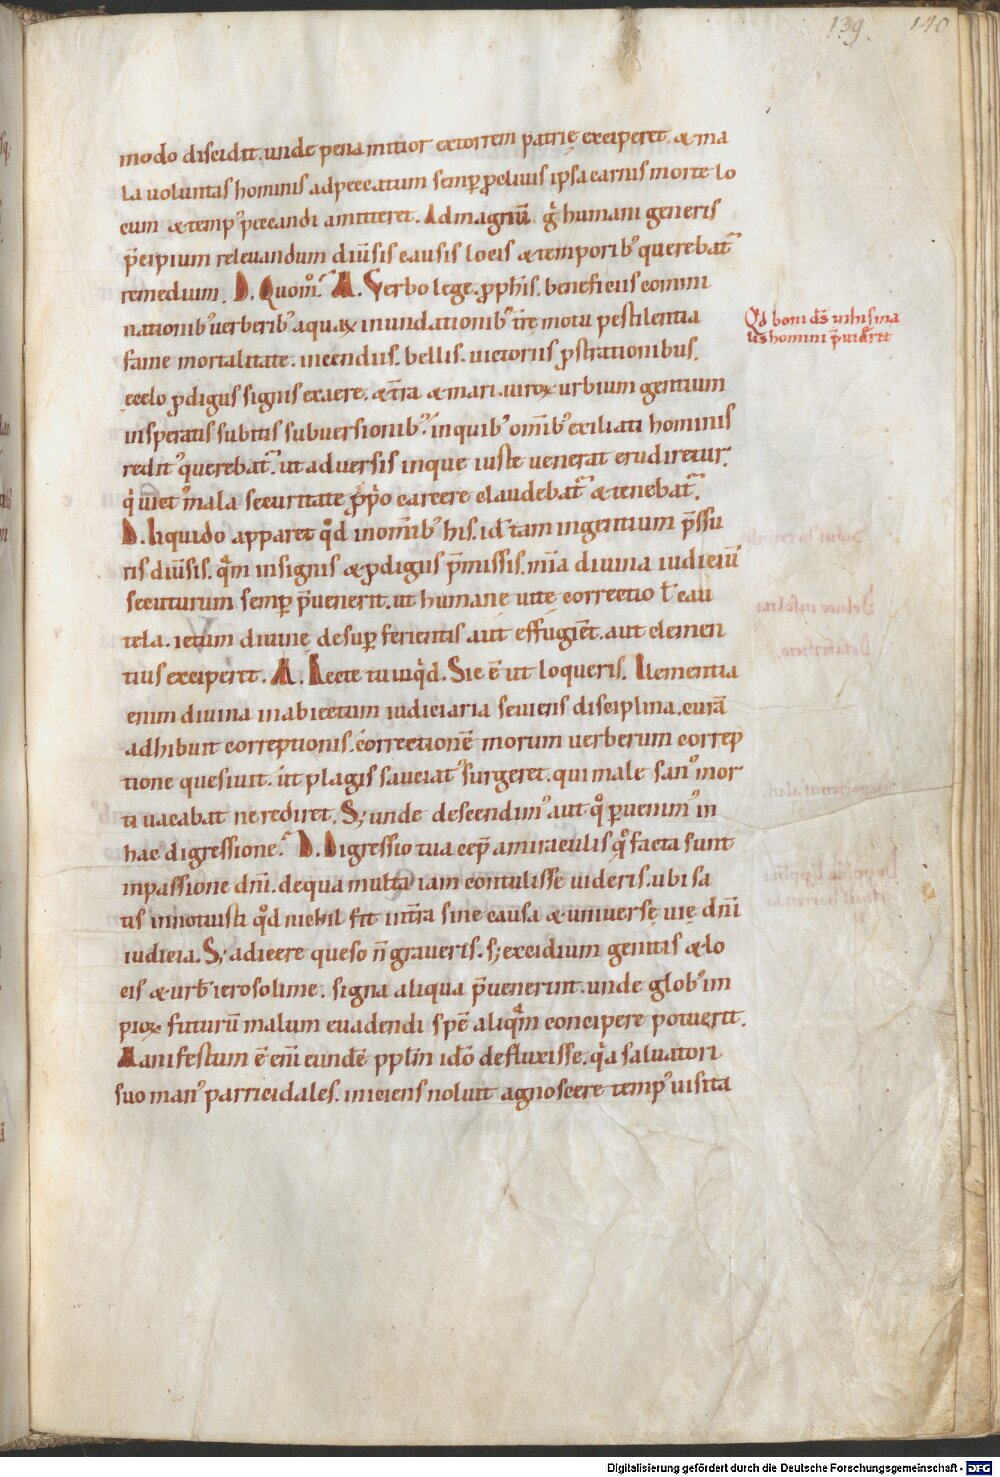 139 140
modo discidit. unde pena mitior extorrem patrię exciperet. & ma
la uoluntas hominis ad peccatum semp̲ p̲cliuis ipsa carnis morte lo
cum & temp᾽ peccandi amitteret. Ad magnū g̊ humani generis
p̄cipium releuandum diūsis causis locis & temporib᾽ querebat᷑
remedium. D. Quom̊? M. Verbo lege. p̲ph̄is. beneficiis commi
nationib᾽ uerberib᾽ aquaꝝ inundationib᾽ t̄rę motu pestilentia
fame mortalitate. incendiis. bellis. uictoriis p̲strationibus.
cęlo p̲digiis signis exaere. & t̄ra & mari. uiroꝝ urbium gentium
insperatis subitis subuersionib᾽. in quib᾽ om̄ib᾽ exiliati hominis
redit᾽ querebat᷑. ut aduersis inque iuste uenerat erudiretur.
q̇ uict᾽ mala securitate p̲p̓o carcere claudebat᷑ & tenebat᷑.
D. Liquido apparet q̊d in om̄ib᾽ his. id̄ tam ingentium p̄ssu
ris diūsis. q̄m insignis & p̲digiis p̄missis. mīa diuina iudiciū
secuturum semp̲ p̄uenerit. ut humanę uitę correctio ł cau
tela. ictum diuinę desup̲ ferientis aut effugiēt. aut clemen
tius exciperit. M. Recte tu inq̇d. Sic ē ut loqueris. Clementia
enim diuina in abiectum iudiciaria seuiens disciplina. curā
adhibuit correptionis. correctionē morum uerberum correp
tione quesiuit. ut plagis sauciat᾽ surgeret. qui male san᾽ mor
ti uacabat ne rediret. S; unde descendim᾽ aut q̊ p̲uenim᾽ in
hac digressione? D. Digressio tua cep̄ a miraculis q̊ facta sunt
in passione dn̄i. de qua multa iam contulisse uideris. ubi sa
tis innotuisti q̊d nichil fit int̄ra sine causa & uniuersę uię dn̄i
iudicia. S; adicere queso n̄ graueris. s; excidium gentis & lo
cis & urb̄ ierosolime. signa aliqua p̄uenerint. unde glob᾽ im
pioꝝ futurū malum euadendi spē aliq̄m concipere potuerit.
Manifestum ē eni eundē pp̲l̄m idō defluxisse. q̄a saluatori
suo man᾽ parricidales. iniciens noluit agnoscere temp᾽ uisita
Qd boni ds̄ uihis ma
lis homini p̄uiderit
Digitalisierung gefördert durch die Deutsche Forschungsgemeinschaft - DFG